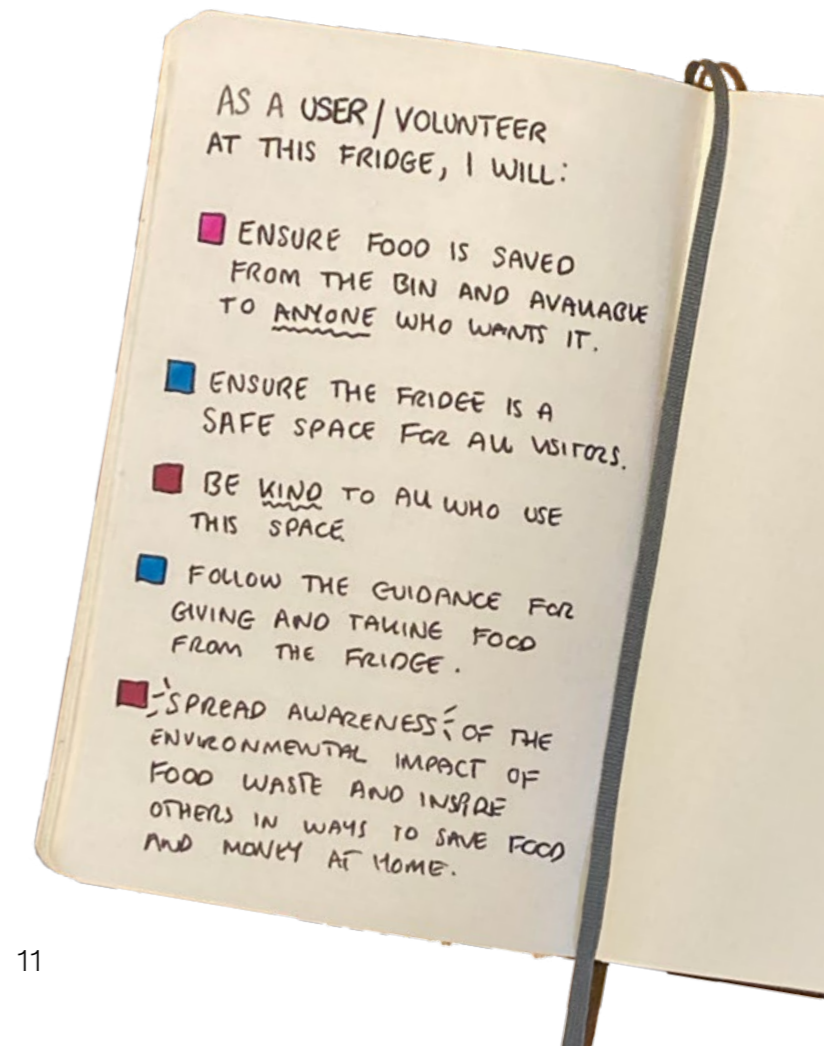 AS A USER / VOLUNTEER
AT THIS FRIDGE, I WILL:
ENSURE FOOD IS SAVED
FROM THE BIN AND AVAILABLE
TO ANYONE WHO WANTS IT.
ENSURE THE FRIDGE IS A
SAFE SPACE FOR ALL VISITORS.
BE KIND TO ALL WHO USE
THIS SPACE.
FOLLOW THE GUIDANCE FOR
GIVING AND TAKING FOOD
FROM THE FRIDGE.
SPREAD AWARENESS OF THE
ENVIRONMENTAL IMPACT OF
FOOD WASTE AND INSPIRE
OTHERS IN WAYS TO SAVE FOOD
AND MONEY AT HOME.
11